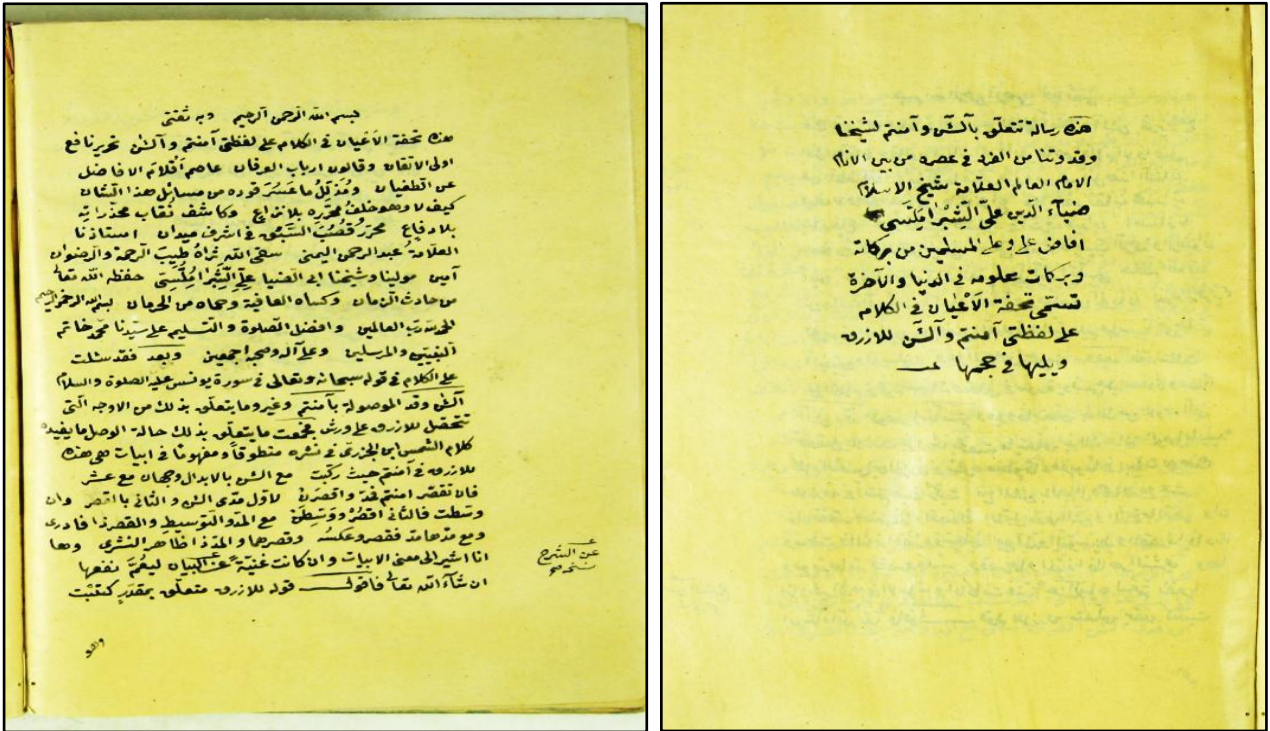 هذه رسالة تتعلق بآلئن وآمنتم لشيخنا
وقدوتنا من انفرد في عصره من بين الانام
الامام العالم العلامة شيخ الاسلام
ضيآء الدين عليّ الشبراملسى
افاض علي وعلى المسلمين من بركاته
وبركات علومه في الدنيا والآخرة
تسمى تحفة الاعيان في الكلام
على لفظتى آمنتم وآلئن للازرق
ويليها في حجمها
بسم الله الرحمن الرحيم وبه ثقتى
هذه تحفة الاَعْيان في الكلام على لفظتى آمنتم وآلئن تحرير نافع
اولى الاتقان وقانون ارباب العرفان عاصم اَقْلام الافاضل
عن الطغيان ومُذلّل ما عَسُرَ قوده من مسائل هذا الشان
كيف لا وهو خلف محرّره بلا نزاع وكاشف نقاب مخدراته
بلا دفاع محرز قصب السبق في اشرف ميدان استاذنا
العلامة عبد الرحمن اليمنى سقى الله ثراهُ طيب الرحمة والرضوان
آمين مولينا وشيخنا ابى الضيا علىّ الشبراملسى حفظه الله تعالى
من حادث الزمان وكساه العافية وحماه من الحرمان بسم الله الرحمن الرحيم
الحمد لله رب العالمين وافضل الصلوة والتسليم على سيدنا محمد خاتم
النبيّين والمرسلين وعلى آله وصحبه اجمعين وبعد فقد سئلت
على الكلام في قوله سبحانه وتعالى في سورة يونس عليه الصلوة والسلام
آلئن وقد الموصولة بآمنتم وغير وما يتعلق بذلك من الاوجه التى
تتحصل للازرق على ورش فجمعت ما يتعلق بذلك حالة الوصل ما يفيده
كلام الشمس ابن الجزرى في نشره منطوقاً ومفهومًا في ابيات هي هذه
للازرق في آمنتم حيث ركّبت مع الئن بالابدال وجهان مع عشر
فان تقصر امنتم فمدّ واقصرن لاول مدّى الئن والثانى باقصر وان
وسطت فالثانى اقصرْ ووسّطن مع المدّ والتوسيط والقصر ذا فادرى
ومع مدّها مدّ فقصر وعكسه وقصرها والمدّ ذا ظاهر النشرى وها
انا اشير الى معنى الابيات وان كانت غنيّة عن البيان ليعُمّ نفعها
ان شآء الله تعالى فاقول قوله للازرق متعلق بمقدر كثبت
عن الشرح